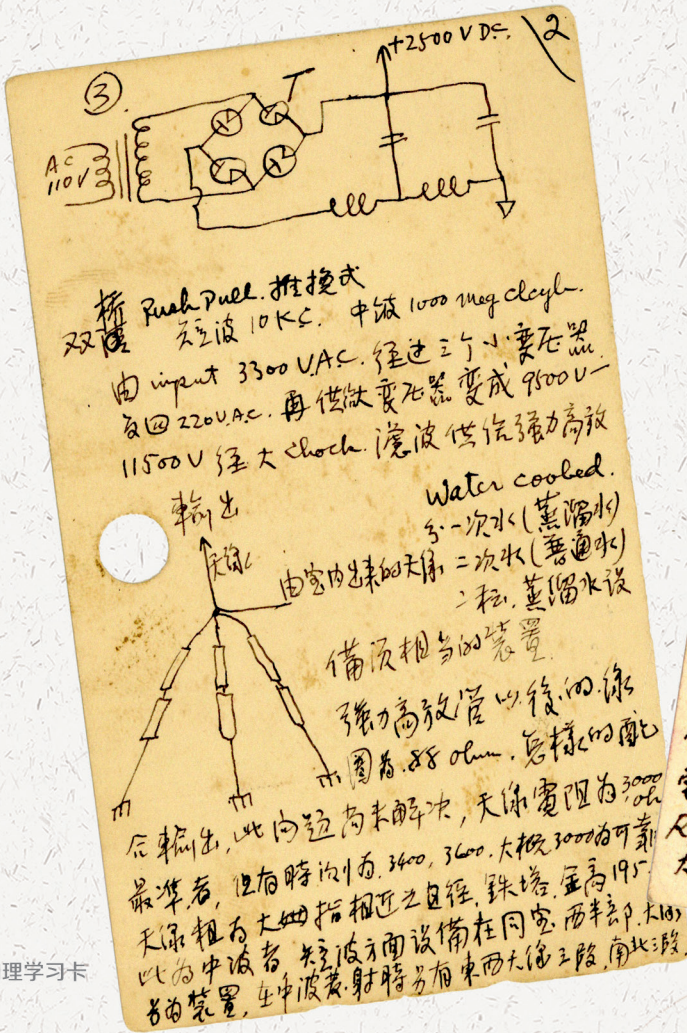 2
③
+2500 V DC.
T
AC
110V
双橋 Push Pull. 推換式
短波 10 KC. 中波 1000 meg
由 input 3300 V.A.C. 经过三个小变压器
变回 220 V.A.C. 再供做变压器变成 9500 V—
11500 V 经大 Chock. 滤波供给强力高放
輸出
天線
由室内出来的天線
Water cooled.
分一次水(蒸溜水)
二次水(普通水)
二种. 蒸溜水设
備须相当的装置
强力高放管以後的線
圈为 .88 ohm. 怎樣的配
合輸出, 此问题尚未解决, 天線電阻为 3000
最準者, 但有時则为. 3400, 3600. 大概 3000 为可靠
天線粗为大姆指相近之直径. 鉄塔. 全高 195.
此为中波者. 短波方面设備在同室西半部.
另为装置, 在中波发.射時另有東西天線三段, 南北三段.
理学习卡